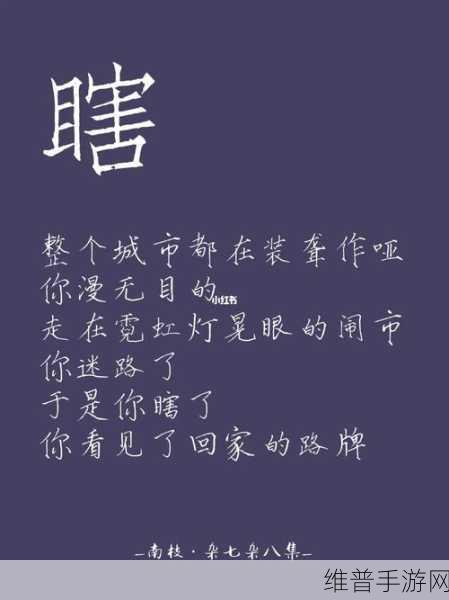 瞎
整个城市都在装聋作哑
你漫无目的
小红书
走在霓虹灯晃眼的闹市
你迷路了
于是你瞎了
你看见了回家的路牌
-南枝·杂七杂八集-
维普手游网